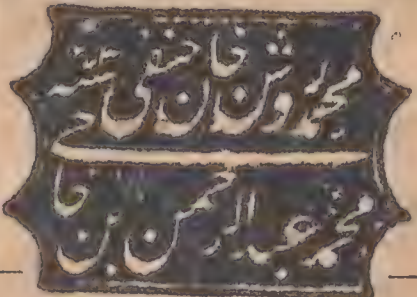 محمد روشن خان حنفی
محمد عبدالرحمن بن حاجے